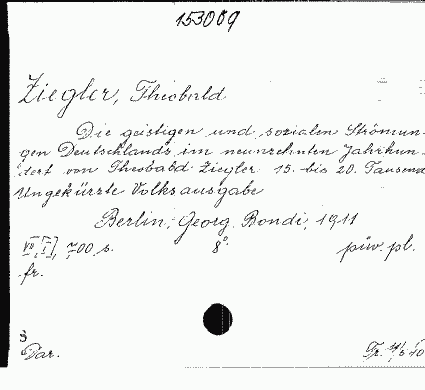 153009
Ziegler, Theobald
Die geistigen und sozialen Strömun-
gen Deutschlands im neunzehnten Jahrhun-
dert von Theobald Ziegler 15. bis 20. Tausend
Ungekürzte Volksausgabe
Berlin, Georg Bondi, 1911
VII, [I], 700 s. 8°. püw. pl.
fr.
§
Dar.